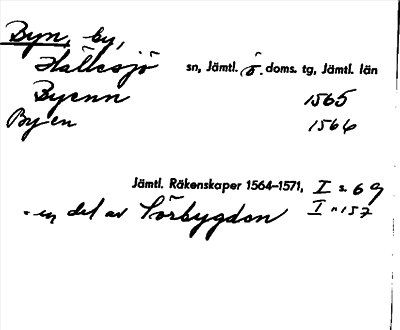 Byn, by,
Hällesjö sn, Jämtl. ö. doms. tg, Jämtl. län
Byenn 1565
Byen 1566
Jämtl. Räkenskaper 1564–1571, I s. 69
= en del av Sörbygden I " 157